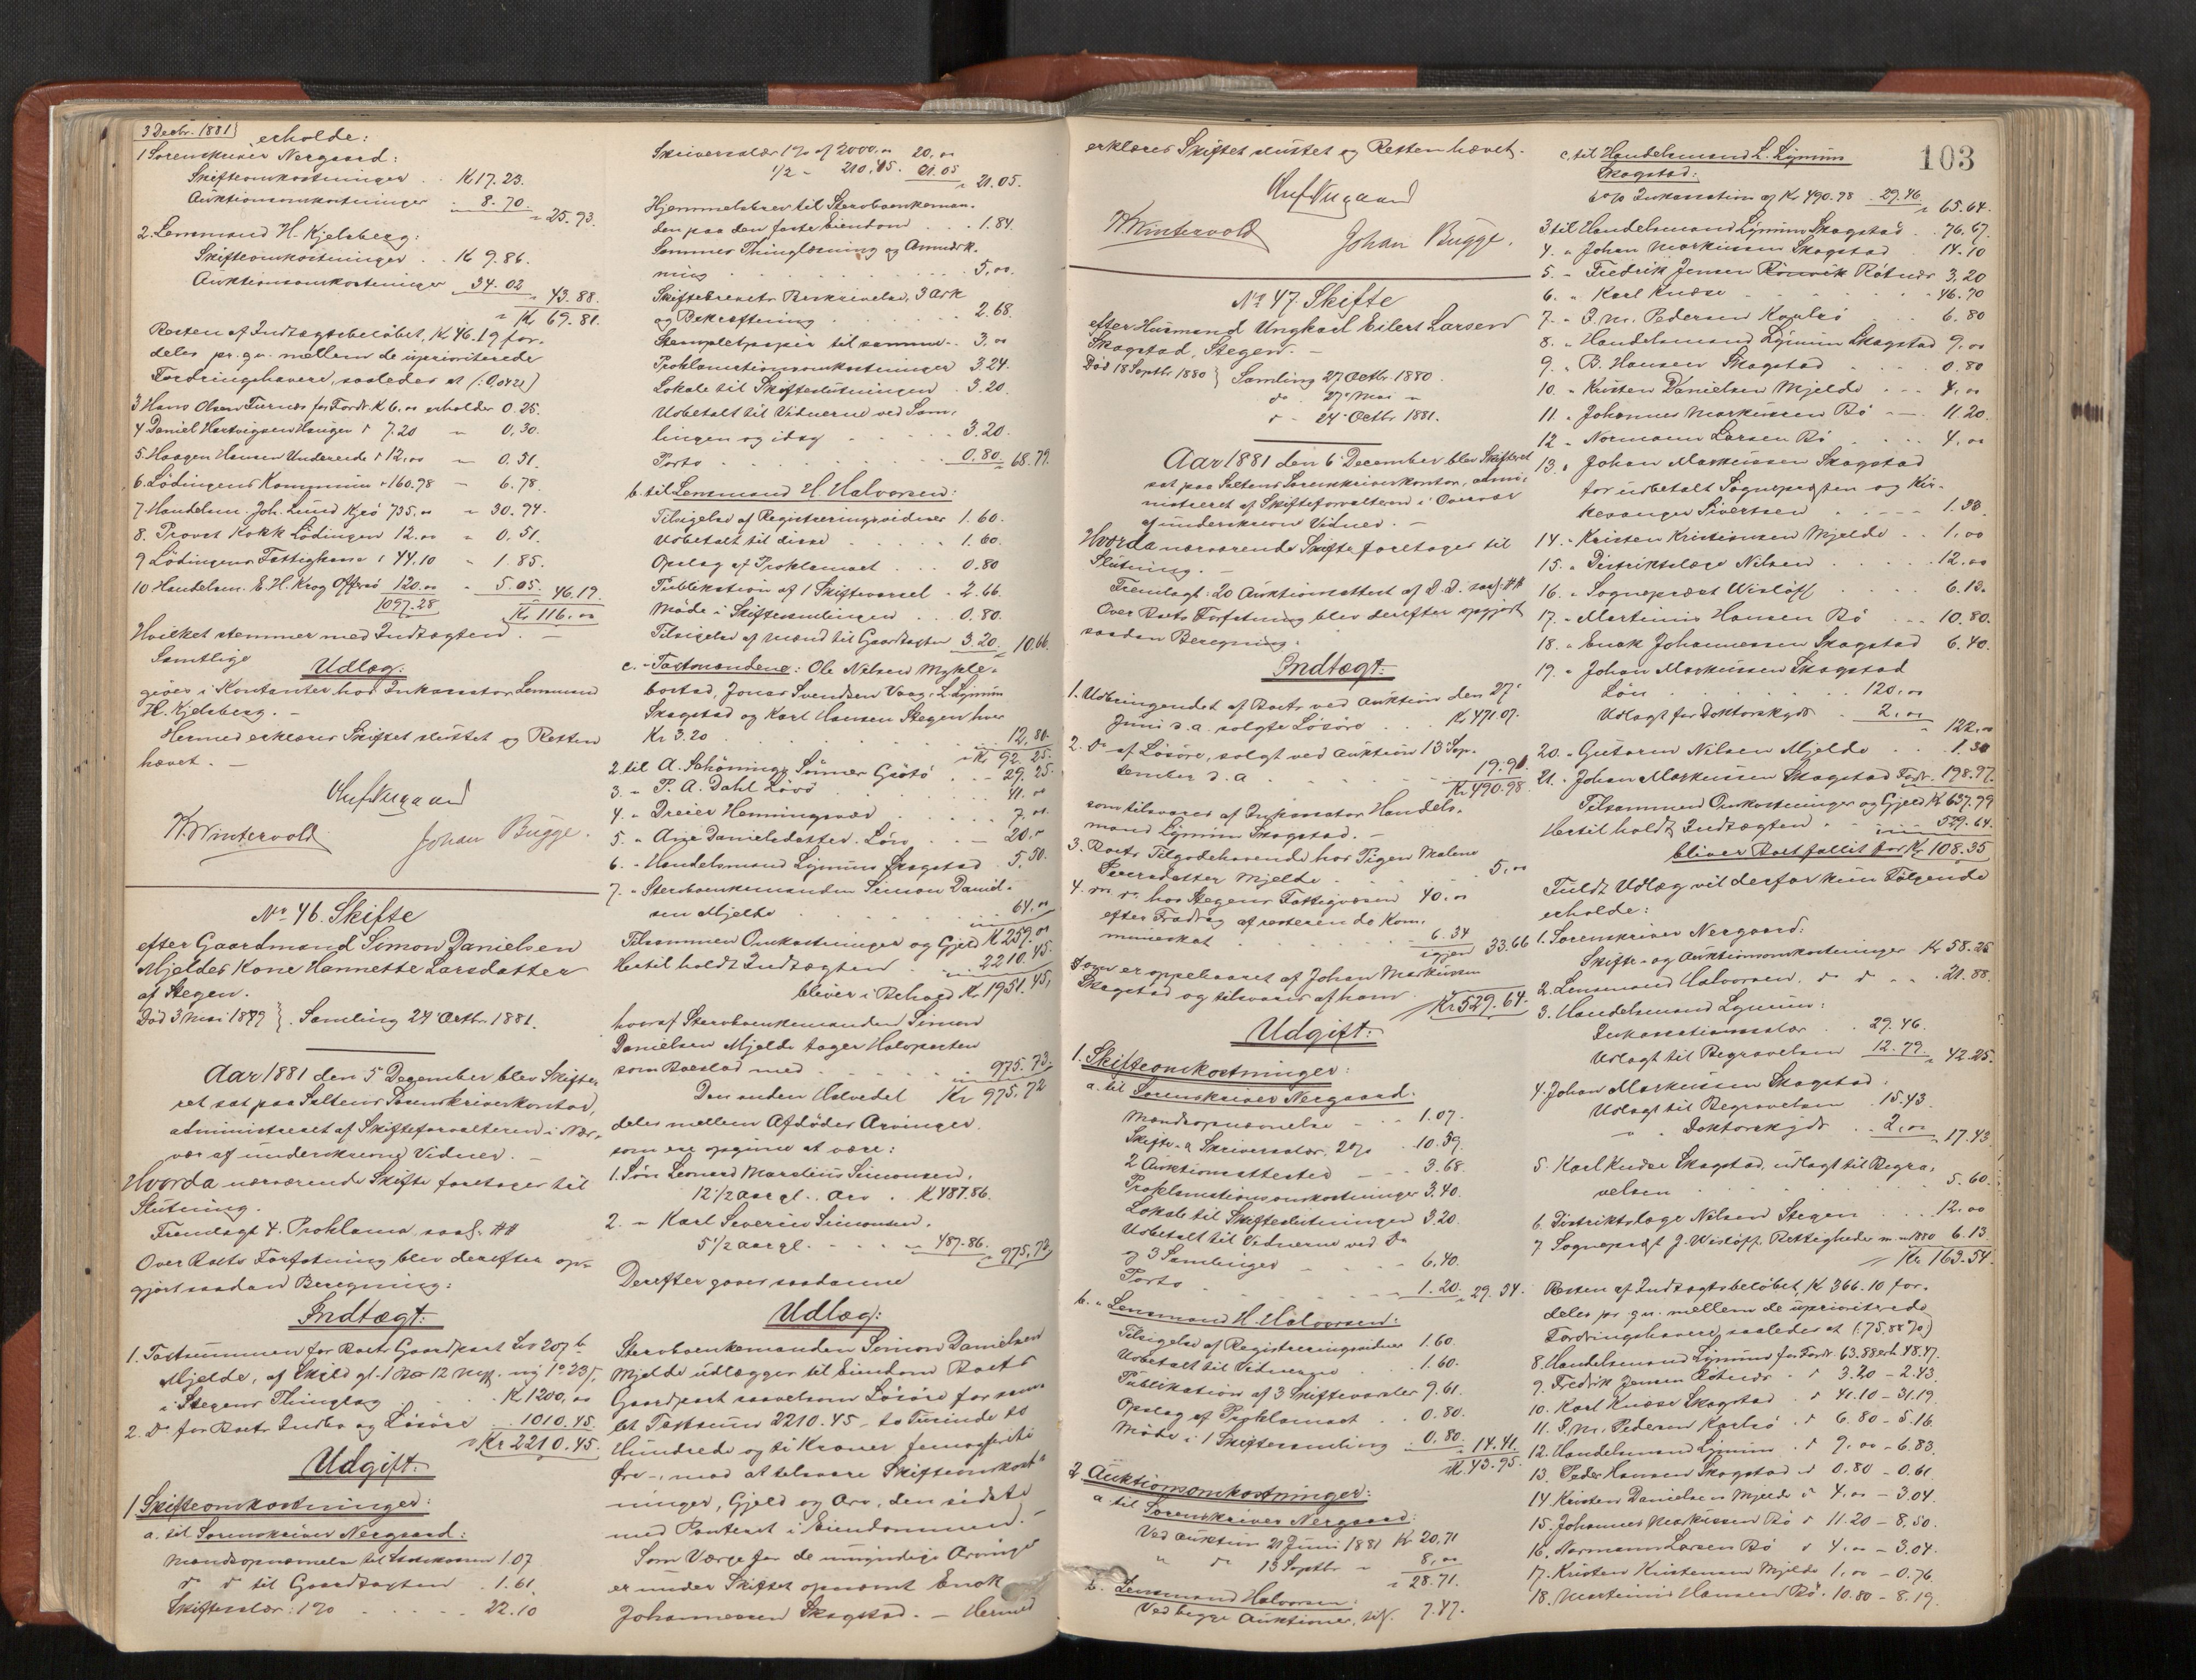 3 Decbr. 1881
erholde:
1 Sorenskriver Nergaard:
Skifteomkostninger . . K 17. 23.
Auktionsomkostninger " 8. 70. " 25. 93.
2. Lensmand H. Kjelsberg:
Skifteomkostninger . . K 9. 86.
Auktionsomkostninger 34. 02 " 43. 88.
" Kr 69. 81.
Resten af Indtægtsbeløbet, Kr 46.19 for-
deles pr. qv. mellem de uprioriterede
Fordringshavere, saaledes at (: 0,0421)
3 Hans Olsen Turnæs for Fordr. K 6,00 erholder 0.25.
4 Daniel Hartvigsen Hauger " 7.20 " 0,30.
5. Haagen Hansen " 12,00 " 0.51.
6. Lødingens Kommune " 160.98 " 6.78.
7. Handelsm. Joh. Lund Kjeø 735,00 " 30.94.
8. Provst Kokk Lødingen 12.00 " 0.51.
9 Lødingens Fattigkasse " 44,10 " 1.85.
10 Handelsm. E. H. Krog Offersø 120.00 " 5.05. 46.19.
1097.28 Kr 116,00
Hvilket stemmer med Indtægten. —
Samtlige Udlæg:
gives i Kontanter hos Inkassator Lensmand
H. Kjelsberg. —
Hermed erklæres Skiftet sluttet og Retten
hævet. —
Oluf Nergaard
W. Wintervold Johan Bugge.
No. 46. Skifte
efter Gaardmand Simon Danielsen
Mjeldes Kone Hannette Larsdatter
af Stegen.
Død 3 Mai 1879 } Samling 24 Octbr. 1881.
Aar 1881 den 5 December blev Skifte-
ret sat paa Saltens Sorenskriverkontor,
administreret af Skifteforvalteren i Nær-
vær af underskrevne Vidner. —
Hvorda nærværende Skifte foretages til
Slutning.
Fremlagt 4. Proklama, saal. ##
Over Boets Forfatning blev derefter op-
gjort saadan Beregning:
Indtægt:
1. Taxtsummen for Boets Gaardpart Lno 207 b
Mjelde, af Skyld gl. 1 12 ny 1. 23/,
i Stegens Thinglag . . K 1200,00
2. Do for Boets Indbo og Løsøre . 1010.45.
" Kr 2210.45.
Udgift:
1 Skifteomkostninger:
a. til Sorenskriver Nergaard:
Mandsopnævnelse til 1.07
" " til Gaardtaxten . . 1.61.
Skiftesalær: 1% . . . . 22.10
Skriversalær 1% af 2000,00 20,00
1/2 - 210,45. 01.05 " 21.05.
Hjemmelsbrev til Stervboenkeman-
den paa den faste Eiendom . . . 1.84.
Sammes Thinglæsning og Anmærk-
ning . . . . . . 5,00.
Skiftebrevets Beskrivelse, 3 Ark
og Bekræftning . . . . 2.68.
Stempletpapir til samme . . 3,00
Proklamationsomkostninger 3.24.
Lokale til Skifteslutningen . 3.20.
Udbetalt til Vidnerne ved Sam-
lingen og idag . . . . . 3.20.
Porto . . . . . . 0.80. " 68.79.
b. til Lensmand H. Halvorsen:
Tilsigelse af Registreringsvidner 1.60.
Udbetalt til disse . . . . 1.60.
Opslag af Proklamaet . . . 0.80
Publikation af 1 Skiftevarsel . 2.66.
Møde i Skiftesamlingen . . 0.80.
Tilsigelse af Mænd til Gaardtaxten 3.20. " 10.66.
c. - Taxtmændene: Ole Nilsen Mykle-
bostad, Jonas Svendsen Vaag, L. Lynum
Skagstad og Karl Hansen Stegen hver
Kr 3.20 . . . . . . 12,80.
" Kr 92.25.
2 til A. Schønings Sønner Grøtø . . — 29.25.
3. " P. A. Dahl Løvø . . . 41.00
4. " Dreier Henningsvær . . . 7,00.
5. " Ane Danielsdatter. Løn . . — 20,00
6. - Handelsmand Lynum Skagstad . 5.50.
7. - Stervboenkemanden Simon Daniel-
sen Mjelde . . . . . . 64,00
Tilsammen Omkostninger og Gjeld K 259.00
Hertil holdt Indtægten . . . 2210.45.
bliver i Behold Kr 1951.45,
hvoraf Stervboenkemanden Simon
Danielsen Mjelde tager Halvparten
som Boeslod med . . . . . 975.73.
Den anden Halvdel Kr 975,72
deles mellem Afdødes Arvinger.
som ere opgivne at være:
1. Søn Leonard Marelius Simonsen,
12 1/2 aar gl. . Arv . K 487.86.
2. " Karl Severin Simonsen.
5 1/2 aar gl. . . . " 487.86. " 975,72
Derefter gjøres saadanne
Udlæg:
Stervboenkemanden Simon Danielsen
Mjelde udlægges til Eiendom Boets
Gaardpart saavelsom Løsøre for sam-
let Taxtsum 2210.45 - to Tusinde to
Hundrede og ti Kroner femogfyrti
Øre -, mod at tilsvare Skifteomkost-
ninger, Gjeld og Arv, den sidste
med Panteret i Eiendommen. —
Som Værge for de umyndige Arvinger
er under Skiftet opnævnt Enok
Johannessen Skagstad. — Hermed
erklæres Skiftet sluttet og Retten hævet.
Oluf Nergaard
W. Wintervold Johan Bugge.
No. 47. Skifte
efter Husmand Ungkarl Eilert Larsen
Skagstad, Stegen. —
Død 18 Septbr 1880 } Samling 27 Octbr. 1880.
do 27 Mai "
" - 24 Octbr 1881.
Aar 1881 den 6 December blev Skifteret
sat paa Saltens Sorenskriverkontor, admi-
nistreret af Skifteforvalteren i Overvær
af underskrevne Vidner. —
Hvorda nærværende Skifte foretages til
Slutning. —
Fremlagt: 20 Auktionsattest af D. D. saal: ##
Over Boets Forfatning blev derefter opgjort
saadan Beregning:
Indtægt:
1. Udbringendet af Boets ved Auktion den 27
Juni d. a. solgte Løsøre . . Kr 471.07.
2. Do af Løsøre, solgt ved Auktion 13 Sep-
tember d. a . . . . . 19.91.
Kr 490.98.
som tilsvares af Inkassator Handels-
mand Lynum Skagstad. —
3. Boets Tilgodehavende hos Pigen Malene
Peersdatter Mjelde . . . . . 5,00
4. " do hos Stegens Fattigvæsen 40,00
efter Fradrag af resterende Kom-
muneskat . . . . 6.34
igjen 33.66
som er oppebaaret af Johan Markussen
Skagstad og tilsvares af ham
Kr 529.64.
Udgift:
1. Skifteomkostninger:
a. til Sorenskriver Nergaard.
Mandsopnævnelse — . . 1.07.
Skifte- & Skriversalær, 2% . 10.59.
2 Auktionsattester — . . 3.68.
Proklamationsomkostninger 3.40.
Lokale til Skifteslutningen 3.20.
Udbetalt til Vidnerne ved Do
og 3 Samlinger . . . 6,40.
Porto . . . . . 1.20. " 29.54.
b. " Lensmand H. Halvorsen:
Tilsigelse af Registreringsvidner 1.60.
Udbetalt til Vidnerne . . 1.60.
Publikation af 3 Skiftevarsler 9.61.
Opslag af Proklamaet . . 0.80.
Møde i 1 Skiftesamling . . 0.80. " 14.41.
Kr. 43.95.
2 Auktionsomkostninger:
a til Sorenskriver Nergaard:
Ved Auktion 27 Juni 1881 Kr 20,71
" do 13 Septbr " 8,00
" 28.71.
b. Lensmand Halvorsen:
Ved begge Auktioner, tils. 7.47.
103
c. til Handelsmand L. Lynum
Skagstad:
6% Inkassation af Kr 490.98 . 29.46. " 65.64.
3 til Handelsmand Lynum Skagstad . . 76.67.
4. " Johan Markussen Skagstad . 14.10
5. " Fredrik Jensen Røtnæs 3,20
6. " Karl Knæse . . . . 46.70
7. " I. M. Pedersen Karlsø . . 6.80
8. " Handelsmand Lynum Skagstad 9,00
9. " B. Hansen Skagstad . . . 0.80
10. " Kristen Danielsen Mjelde . . 4,00
11. " Johannes Markussen Bø . — . 11.20.
12 " Normann Larsen Bø . . . 4,00
13. " Johan Markussen Skagstad
for udbetalt Sognepræsten og Kir-
kesanger Sivertsen . . . . 1.33.
14. " Kristen Kristiansen Mjelde . . 1,00
15. " Distriktslæge Nilsen . . . . 12.00
16. " Sognepræst Wisløff . . . 6.13.
17. " Martinus Hansen Bø . . . 10.80.
18. " Enok Johannessen Skagstad 6.40.
19. " Johan Markussen Skagstad
Løn . . . . . 120,00
Udlagt for Doktorskyds . . 2,00 " 122,00
20. " Gutorm Nilsen Mjelde . . 1.30
21. " Johan Markussen Skagstad Fordr. 198.97.
Tilsammen Omkostninger og Gjeld Kr 637.99
Hertil holdt Indtægten . . . 529.64.
bliver Boet fallit for Kr 108.35
Fuldt Udlæg vil derfor kun Følgende
erholde:
1. Sorenskriver Nergaard:
Skifte- og Auktionsomkostninger Kr 58.25
2. Lensmand Halvorsen, do do . . 21.88.
3. Handelsmand Lynum:
Inkassationssalær . . 29.46.
Udlagt til Begravelsen 12.79 " 42.25.
4. Johan Markussen Skagstad:
Udlagt til Begravelsen . 15.43.
" " Doktorskyds . . 2,00 " 17.43.
5. Karl Knæse Skagstad, udlagt til Begra-
velsen . . . . . . 5.60.
6. Distriktslæge Nilsen Stegen . . . 12.00
7 Sognepræst J. Wisløff, Rettigheder m.m. 1880 6.13.
" Kr. 163.54.
Resten af Indtægtsbeløbet, Kr 366.10 for-
deles pr. qv. mellem de uprioriterede
Fordringshavere, saaledes at (: 75,88 %:)
8. Handelsmand Lynum for Fordr. 63.88 erh. 48.47.
9. Fredrik Jensen Røtnæs . " 3.20 - 2.43.
10. Karl Knæse Skagstad . " 41.10 - 31.19.
11. I. M. Pedersen Karlsø . " 6.80 - 5.16.
12. Handelsmand Lynum . " 9,00 - 6.83.
13. Peder Hansen Skagstad " 0.80 - 0.61.
14 Kristen Danielsen Mjelde " 4,00 - 3.04.
15. Johannes Markussen Bø " 11.20 - 8,50.
16. Normann Larsen Bø " 4,00 - 3.04.
17. Kristen Kristensen Mjelde 1,00 - 0.76.
18. Martinus Hansen Bø . 10.80 - 8.19.